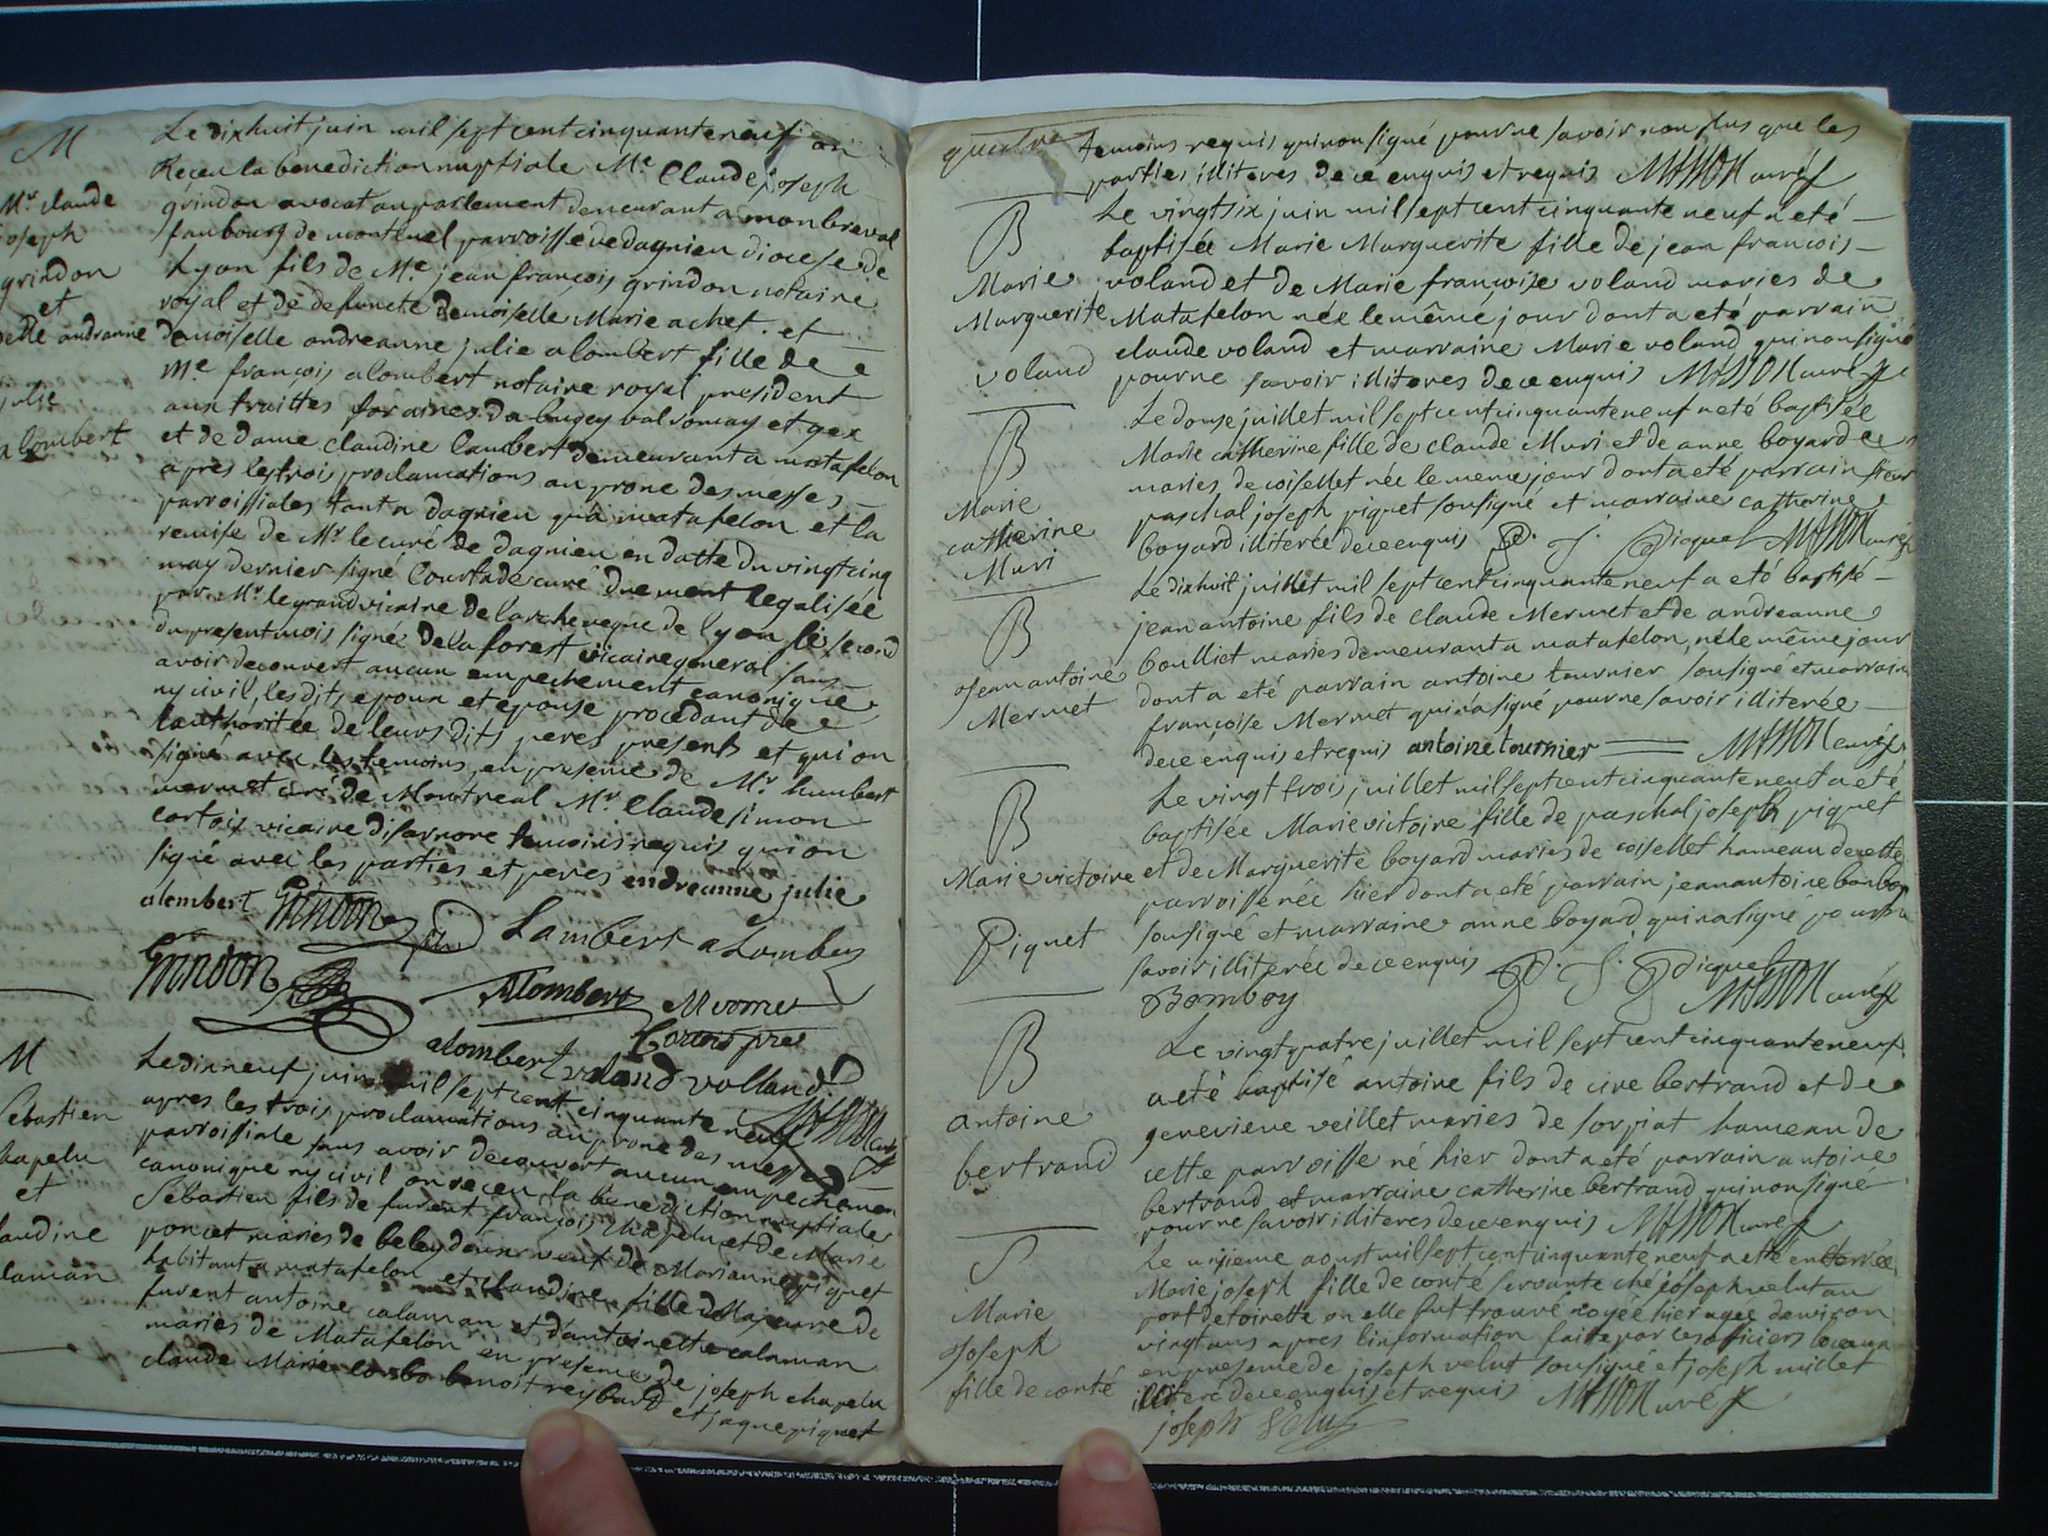 M
Mr claude
joseph
grindon
et
delle andreanne
julie
alombert
Le dix huit juin mil sept cent cinquante neuf on
Reçeu la benediction nuptiale Me Claude joseph
grindon avocat au parlement demeurant a monbreval
faubourg de montluel parroisse de dagnieu diocese de
Lyon fils de Me jean françois grindon notaire
royal et de defuncte demoiselle Marie achet. et
demoiselle andreanne julie alombert fille de
Me françois alombert notaire royal president
aux traittes foraines du bugey valromay et gex
et de dame claudine lambert demeurant a matafelon
apres les trois proclamations au prone des messes
parroissiales tant a dagnieu qu'a matafelon et la
remise de Mr le curé de dagnieu en datte du vingt cinq
may dernier signé Courtade curé duement legalisée
par Mr le grand vicaire de l'archeveque de lyon le second
du present mois signé de la forest vicaire general sans
avoir decouvert aucun empechement canonique
ny civil, les dits epoux et epouse procedant de
l'authoritée de leurs dits peres presents et qui on
signé avec les temoins en presence de Mr humbert
mermet curé de Montreal Mr Claude simon
cortois vicaire disarnore temoins requis qui on
signé avec les parties et peres endreanne julie
alembert Grindon Lambert alombert
Grindon Alombert Mermet
Cortois pre
alombert voland volland
MASSON curé
M
Sebastien
chapelu
et
claudine
calaman
Le dix neuf juin mil sept cent cinquante neuf
apres les trois proclamations au prone des messes
parroissiale sans avoir decouvert aucun empechemen
canonique ny civil on reçeu la benediction nuptiale
Sebastien fils de furent françois chapelu et de Marie
poncet mariés de beleydoux veuf de Marianne piquet
habitant a matafelon et claudine fille majeure de
furent antoine calaman et d'antoinette calaman
mariés de Matafelon en presence de joseph chapelu
claude Marie benoit reybard et jaque piquet
temoins requis qui non signé pour ne savoir non plus que les
parties illiteres de ce enquis et requis MASSON curé
B
Marie
Marguerite
voland
Le vingt six juin mil sept cent cinquante neuf a eté
baptisée Marie Marguerite fille de jean françois
voland et de Marie françoise voland maries de
Matafelon née le même jour dont a eté parrain
claude voland et marraine Marie voland qui non signé
pour ne savoir illiteres de ce enquis MASSON curé
B
Marie
catherine
Muri
Le douse juillet mil sept cent cinquante neuf a eté baptisée
Marie catherine fille de claude Muri et de anne boyard
maries de coisellet née le meme jour dont a eté parrain sieur
paschal joseph piquet sousigné et marraine catherine
boyard illiterée de ce enquis P. J. Piquet MASSON curé
B
Jean antoine
Mermet
Le dix huit juillet mil sept cent cinquante neuf a eté baptisé
jean antoine fils de claude Mermet et de andreanne
boulliet maries demeurant a matafelon, né le même jour
dont a eté parrain antoine tournier sousigné et marrain
françoise Mermet qui n'a signé pour ne savoir illiterée
de ce enquis et requis antoine tournier MASSON curé
B
Marie victoire
Piquet
Le vingt trois juillet mil sept cent cinquante neuf a eté
baptisée Marie victoire fille de paschal joseph piquet
et de Marguerite boyard maries de coisellet hameau de cette
parroisse née hier dont a eté parrain jean antoine bonboy
sousigné et marraine anne boyard qui na signé pour ne
savoir illiterée de ce enquis P. J. Piquet
Bomboy MASSON curé
B
antoine
bertrand
Le vingt quatre juillet mil sept cent cinquante neuf
a eté baptisé antoine fils de cire bertrand et de
genevieve veillet maries de sorpiat hameau de
cette parroisse né hier dont a eté parrain antoine
bertrand et marraine catherine bertrand qui non signé
pour ne savoir illiteres de ce enquis MASSON curé
S
Marie
Joseph
fille de conté
Le unsieme aoust mil sept cent cinquante neuf a etté enterrée
Marie joseph fille de conté servante ché joseph velut au
port de toirette ou elle fut trouvé noyée hier agee d'environ
vingt ans apres l'information faite par les officiers locaux
en presence de joseph velut sousigné et joseph millet
illiteré de ce enquis et requis MASSON curé
joseph Velut